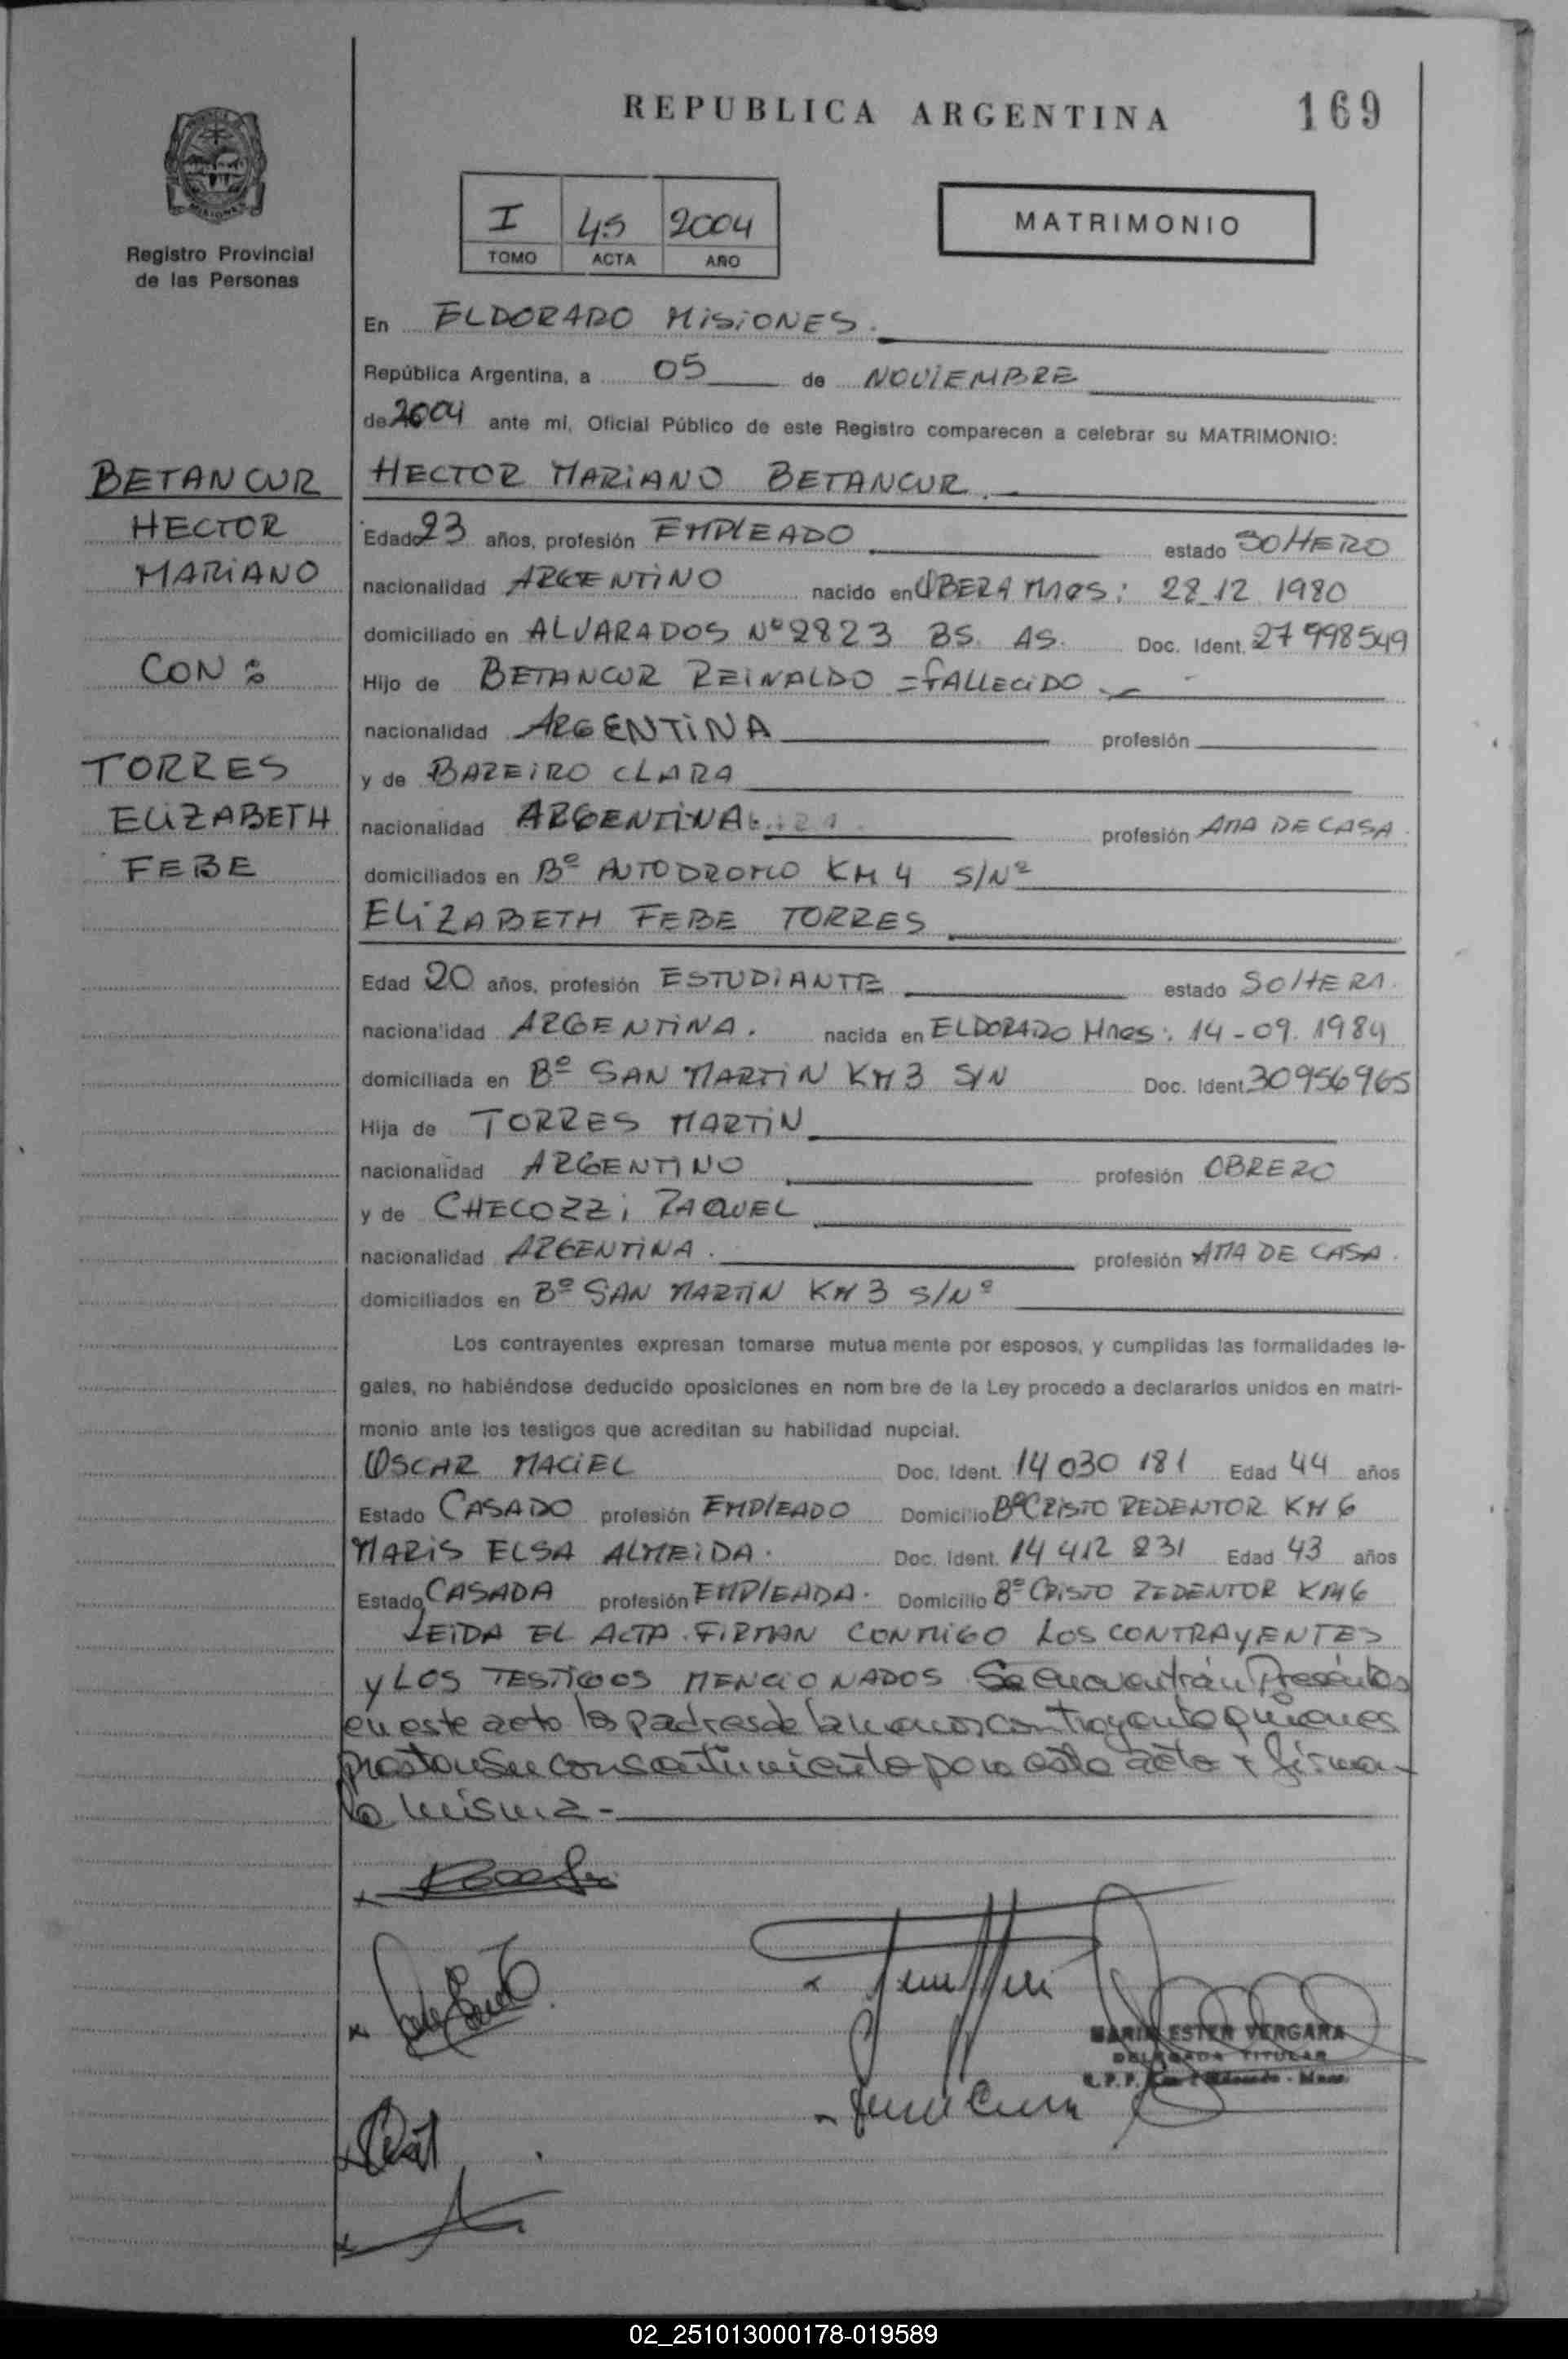 REPUBLICA ARGENTINA
169
Registro Provincial
de las Personas
I 45 2004
TOMO ACTA AÑO
MATRIMONIO
En ELDORADO MISIONES.
República Argentina, a 05 de NOVIEMBRE
de 2004 ante mí, Oficial Público de este Registro comparecen a celebrar su MATRIMONIO:
BETANCUR
HECTOR
MARIANO
CON :
TORRES
ELIZABETH
FEBE
HECTOR MARIANO BETANCUR.
Edad 23 años, profesión EMPLEADO estado SOLTERO
nacionalidad ARGENTINO nacido en OBERA Mnes: 28.12.1980
domiciliado en ALVARADOS Nº 2823 BS. AS. Doc. Ident. 27998549
Hijo de BETANCUR REINALDO =FALLECIDO
nacionalidad ARGENTINA profesión
y de BAREIRO CLARA
nacionalidad ARGENTINA profesión AMA DE CASA.
domiciliados en Bº AUTODROMO KM 4 S/Nº
ELIZABETH FEBE TORRES
Edad 20 años, profesión ESTUDIANTE estado SOLTERA.
nacionalidad ARGENTINA. nacida en ELDORADO Mnes: 14-09.1984
domiciliada en Bº SAN MARTIN KM 3 S/N Doc. Ident. 30956965
Hija de TORRES MARTIN
nacionalidad ARGENTINO profesión OBRERO
y de CHECOZZI RAQUEL
nacionalidad ARGENTINA. profesión AMA DE CASA.
domiciliados en Bº SAN MARTIN KM 3 S/Nº
Los contrayentes expresan tomarse mutua mente por esposos, y cumplidas las formalidades le-
gales, no habiéndose deducido oposiciones en nom bre de la Ley procedo a declararlos unidos en matri-
monio ante los testigos que acreditan su habilidad nupcial.
OSCAR MACIEL Doc. Ident. 14 030 181 Edad 44 años
Estado CASADO profesión EMPLEADO Domicilio Bº CRISTO REDENTOR KM 6
MARIS ELSA ALMEIDA. Doc. Ident. 14 412 831 Edad 43 años
Estado CASADA profesión EMPLEADA. Domicilio Bº CRISTO REDENTOR KM 6
LEIDA EL ACTA FIRMAN CONMIGO LOS CONTRAYENTES
y LOS TESTIGOS MENCIONADOS Se encuentrán Presentes
en este acto los padres de la menor contrayente quienes
prestan su consentimiento para este acto y firman
la misma-
MARIA ESTER VERGARA
DELEGADA TITULAR
02_251013000178-019589